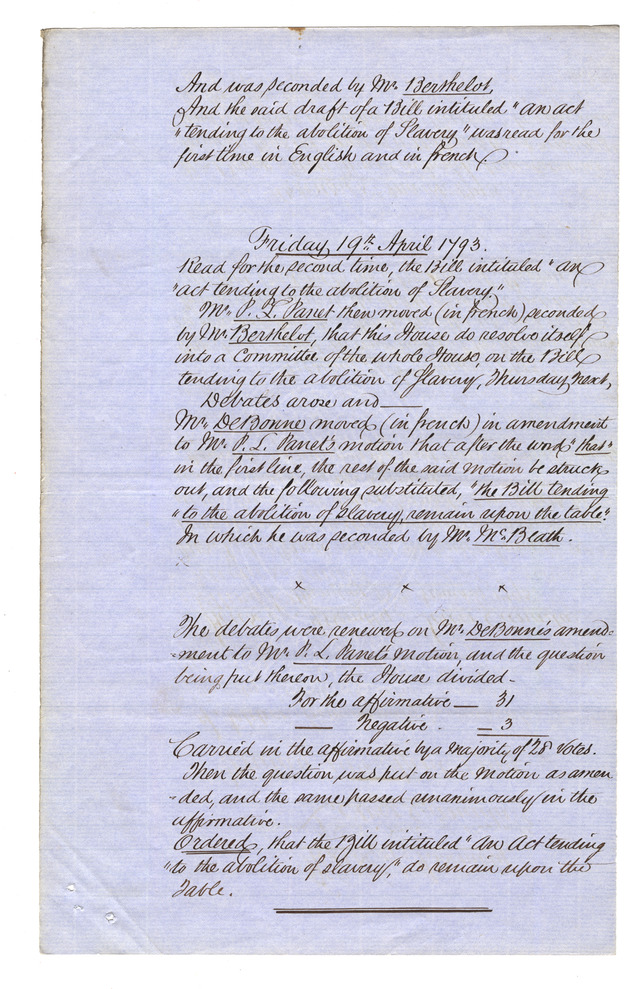 And was seconded by Mr. Berthelot,
And the said draft of a Bill intituled "an act
"tending to the abolition of Slavery" was read for the
first time in English and in french.
Friday, 19th April 1793.
Read for the second time, the Bill intituled "an
"act tending to the abolition of Slavery."
Mr. P. L. Panet then moved (in french) seconded
by Mr. Berthelot, that this House do resolve itself
into a Committee of the whole House, on the Bill
tending to the abolition of Slavery, Thursday next,
Debates arose and——
Mr. DeBonne moved (in french) in amendment
to Mr. P. L. Panet's motion that after the word "that"
in the first line, the rest of the said motion be struck
out, and the following substituted, "the Bill tending
"to the abolition of slavery, remain upon the table".
In which he was seconded by Mr. McBeath.
x x x
The debates were renewed on Mr. DeBonne's amend=
=ment to Mr. P. L. Panet's motion, and the question
being put thereon, the House divided -
For the affirmative — 31
— Negative. — 3
Carried in the affirmative by a majority of 28 Votes.
Then the question was put on the motion as amen
-ded, and the same passed unanimously in the
affirmative.
Ordered, that the Bill intituled "An Act tending
"to the abolition of slavery," do remain upon the
Table.